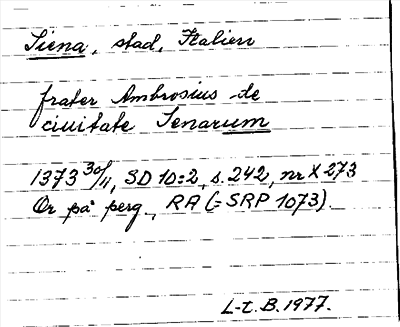 Siena, stad, Italien
frater Ambrosius de
ciuitate Senarum
1373 30/11, SD 10:2, s. 242, nr X 273
Or på perg., RA (=SRP 1073).
L-t. B. 1977.